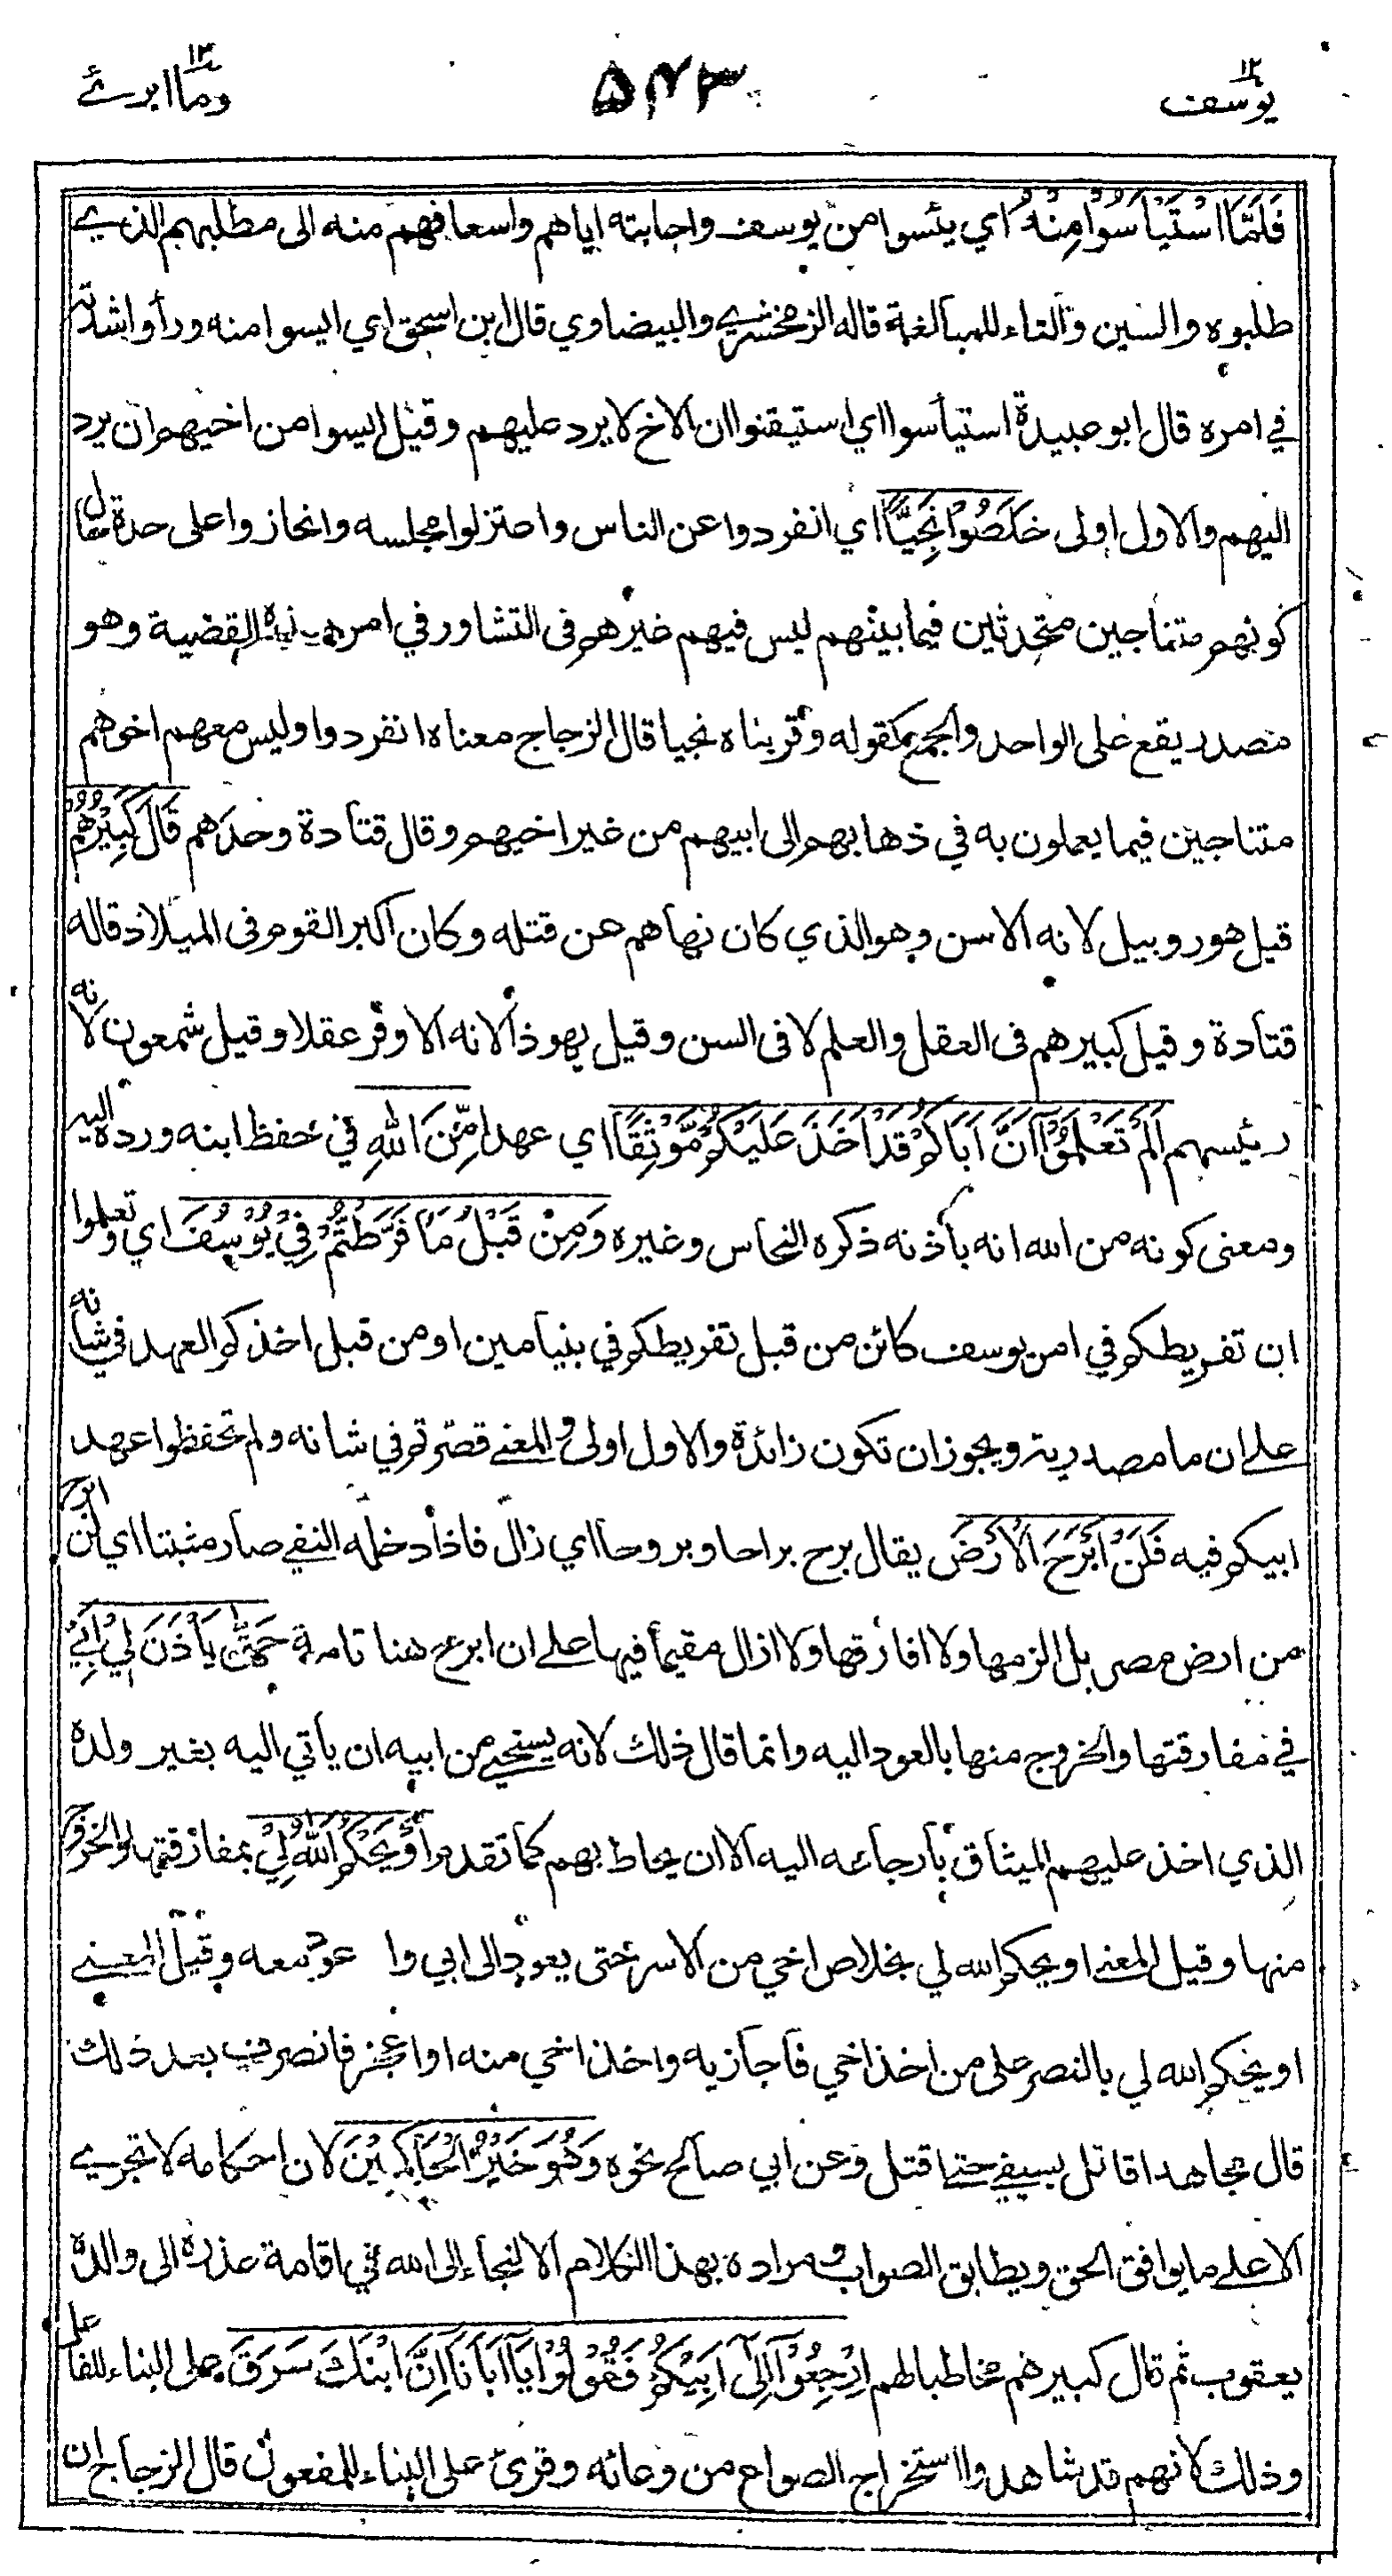 يوسف ١٢
٥٤٣
وما ابرئ ١٣
فَلَمَّا اسْتَيْأَسُوْا مِنْهُ اي يئسوا من يوسف واجابته اياهم واسعافهم منه الى مطلبهم الذي
طلبوه والسين والتاء للمبالغة قاله الزمخشري والبيضاوي قال ابن اسحق اي ايسوا منه ورأوا شدته
في امره قال ابو عبيدة استيأسوا اي استيقنوا ان الاخ لا يرد عليهم وقيل ايسوا من اخيهم ان يرد
اليهم والاول اولى خَلَصُوْا نَجِيًّا اي انفردوا عن الناس واعتزلوا مجلسه وانحازوا على حدة حال
كونهم متناجين متحدثين فيما بينهم ليس فيهم غيرهم في التشاور في امر هذه القضية وهو
مصدر يقع على الواحد والجمع كقوله وقربناه نجيا قال الزجاج معناه انفردوا وليس معهم اخوهم
متناجين فيما يعملون به في ذهابهم الى ابيهم من غير اخيهم وقال قتادة وحدهم قَالَ كَبِيْرُهُمْ
قيل هو روبيل لانه الاسن وهو الذي كان نهاهم عن قتله وكان اكبر القوم في الميلاد قاله
قتادة وقيل كبيرهم في العقل والعلم لا في السن وقيل يهوذا لانه الاوفر عقلا وقيل شمعون لانه
رئيسهم اَلَمْ تَعْلَمُوْا اَنَّ اَبَاكُمْ قَدْ اَخَذَ عَلَيْكُمْ مَّوْثِقًا اي عهدا مِّنَ اللّٰهِ في حفظ ابنه ورده اليه
ومعنى كونه من الله انه باذنه ذكره النحاس وغيره وَمِنْ قَبْلُ مَا فَرَّطْتُّمْ فِيْ يُوْسُفَ اي وتعلموا
ان تفريطكم في امر يوسف كائن من قبل تفريطكم في بنيامين او من قبل اخذكم العهد في شانه
على ان ما مصدرية ويجوز ان تكون زائدة والاول اولى والمعنى قصرتم في شانه ولم تحفظوا عهد
ابيكم فيه فَلَنْ اَبْرَحَ الْاَرْضَ يقال برح براحا وبروحا اي زال فاذا دخله النفي صار مثبتا اي لن ابرح
من ارض مصر بل الزمها ولا افارقها ولا ازال مقيما فيها على ان ابرح هنا تامة حَتّٰى يَاْذَنَ لِيْ اَبِيْ
في مفارقتها والخروج منها بالعود اليه وانما قال ذلك لانه يستحيي من ابيه ان يأتي اليه بغير ولده
الذي اخذ عليهم الميثاق بارجاعه اليه الا ان يحاط بهم كما تقدم اَوْ يَحْكُمَ اللّٰهُ لِيْ بمفارقتها والخروج
منها وقيل المعنى او يحكم الله لي بخلاص اخي من الاسر حتى يعود الى ابي وا عود معه وقيل المعنى
او يحكم الله لي بالنصر على من اخذ اخي فاجازيه واخذ اخي منه او اعجز فانصرف بعد ذلك
قال مجاهد اقاتل بسيفي حتى اقتل وعن ابي صالح نحوه وَهُوَ خَيْرُ الْحَاكِمِيْنَ لان احكامه لا تجري
الا على ما يوافق الحق ويطابق الصواب ومراده بهذا الكلام الالتجاء الى الله في اقامة عذره الى والده
يعقوب ثم قال كبيرهم مخاطبا لهم اِرْجِعُوْا اِلٰى اَبِيْكُمْ فَقُوْلُوْا يَا اَبَانَا اِنَّ ابْنَكَ سَرَقَ على البناء للفاعل
وذلك لانهم قد شاهدوا استخراج الصواع من وعائه وقرئ على البناء للمفعول قال الزجاج ان